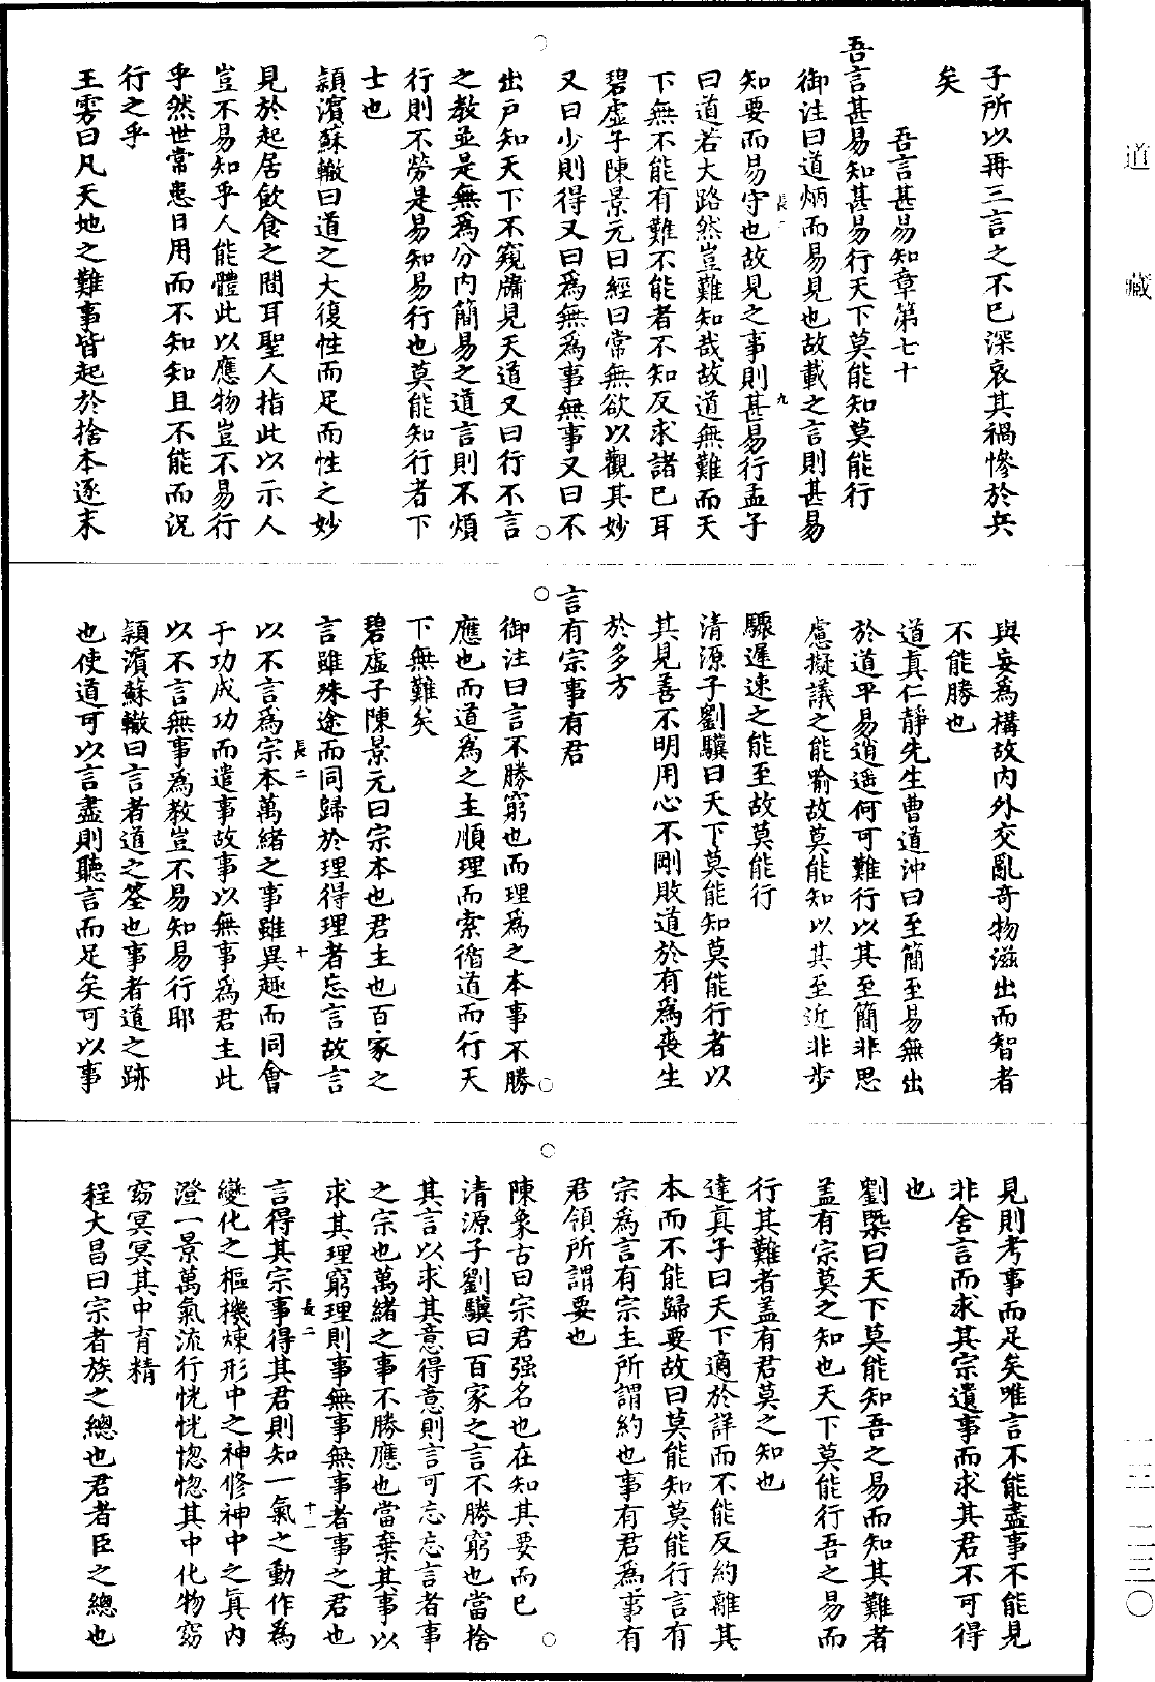 道藏
子所以再三言之不已深哀其禍慘於兵
矣
吾言甚易知章第七十
吾言甚易知甚易行天下莫能知莫能行
御注曰道炳而易見也故載之言則甚易
知要而易守也故見之事則甚易行孟子
長二
九
曰道若大路然豈難知哉故道無難而天
下無不能有難不能者不知反求諸己耳
碧虛子陳景元曰經曰常無欲以觀其妙
又曰少則得又曰為無為事無事又曰不
出戶知天下不窺牖見天道又曰行不言
之教並是無為分內簡易之道言則不煩
行則不勞是易知易行也莫能知行者下
士也
頴濱蘇轍曰道之大復性而足而性之妙
見於起居飲食之間耳聖人指此以示人
豈不易知乎人能體此以應物豈不易行
乎然世常患日用而不知知且不能而況
行之乎
王雱曰凡天地之難事皆起於捨本逐末
與妄為構故內外交亂奇物滋出而智者
不能勝也
道真仁靜先生曹道沖曰至簡至易無出
於道平易逍遥何可難行以其至簡非思
慮擬議之能喻故莫能知以其至近非步
驟遲速之能至故莫能行
清源子劉驥曰天下莫能知莫能行者以
其見善不明用心不剛敗道於有為喪生
於多方
言有宗事有君
御注曰言不勝窮也而理為之本事不勝
應也而道為之主順理而索循道而行天
下無難矣
碧虛子陳景元曰宗本也君主也百家之
言雖殊途而同歸於理得理者忘言故言
長二
十
以不言為宗本萬緒之事雖異趣而同會
于功成功而遣事故事以無事為君主此
以不言無事為教豈不易知易行耶
頴濱蘇轍曰言者道之筌也事者道之跡
也使道可以言盡則聽言而足矣可以事
見則考事而足矣唯言不能盡事不能見
非舍言而求其宗遺事而求其君不可得
也
劉槩曰天下莫能知吾之易而知其難者
盖有宗莫之知也天下莫能行吾之易而
行其難者盖有君莫之知也
達真子曰天下適於詳而不能反約離其
本而不能歸要故曰莫能知莫能行言有
宗為言有宗主所謂約也事有君為事有
君領所謂要也
陳象古曰宗君强名也在知其要而已
清源子劉驥曰百家之言不勝窮也當捨
其言以求其意得意則言可忘忘言者事
之宗也萬緒之事不勝應也當棄其事以
求其理窮理則事無事無事者事之君也
長二
十一
言得其宗事得其君則知一氣之動作為
變化之樞機煉形中之神修神中之真內
澄一景萬氣流行恍恍惚惚其中化物窈
窈冥冥其中育精
程大昌曰宗者族之總也君者臣之總也
一三—二三〇